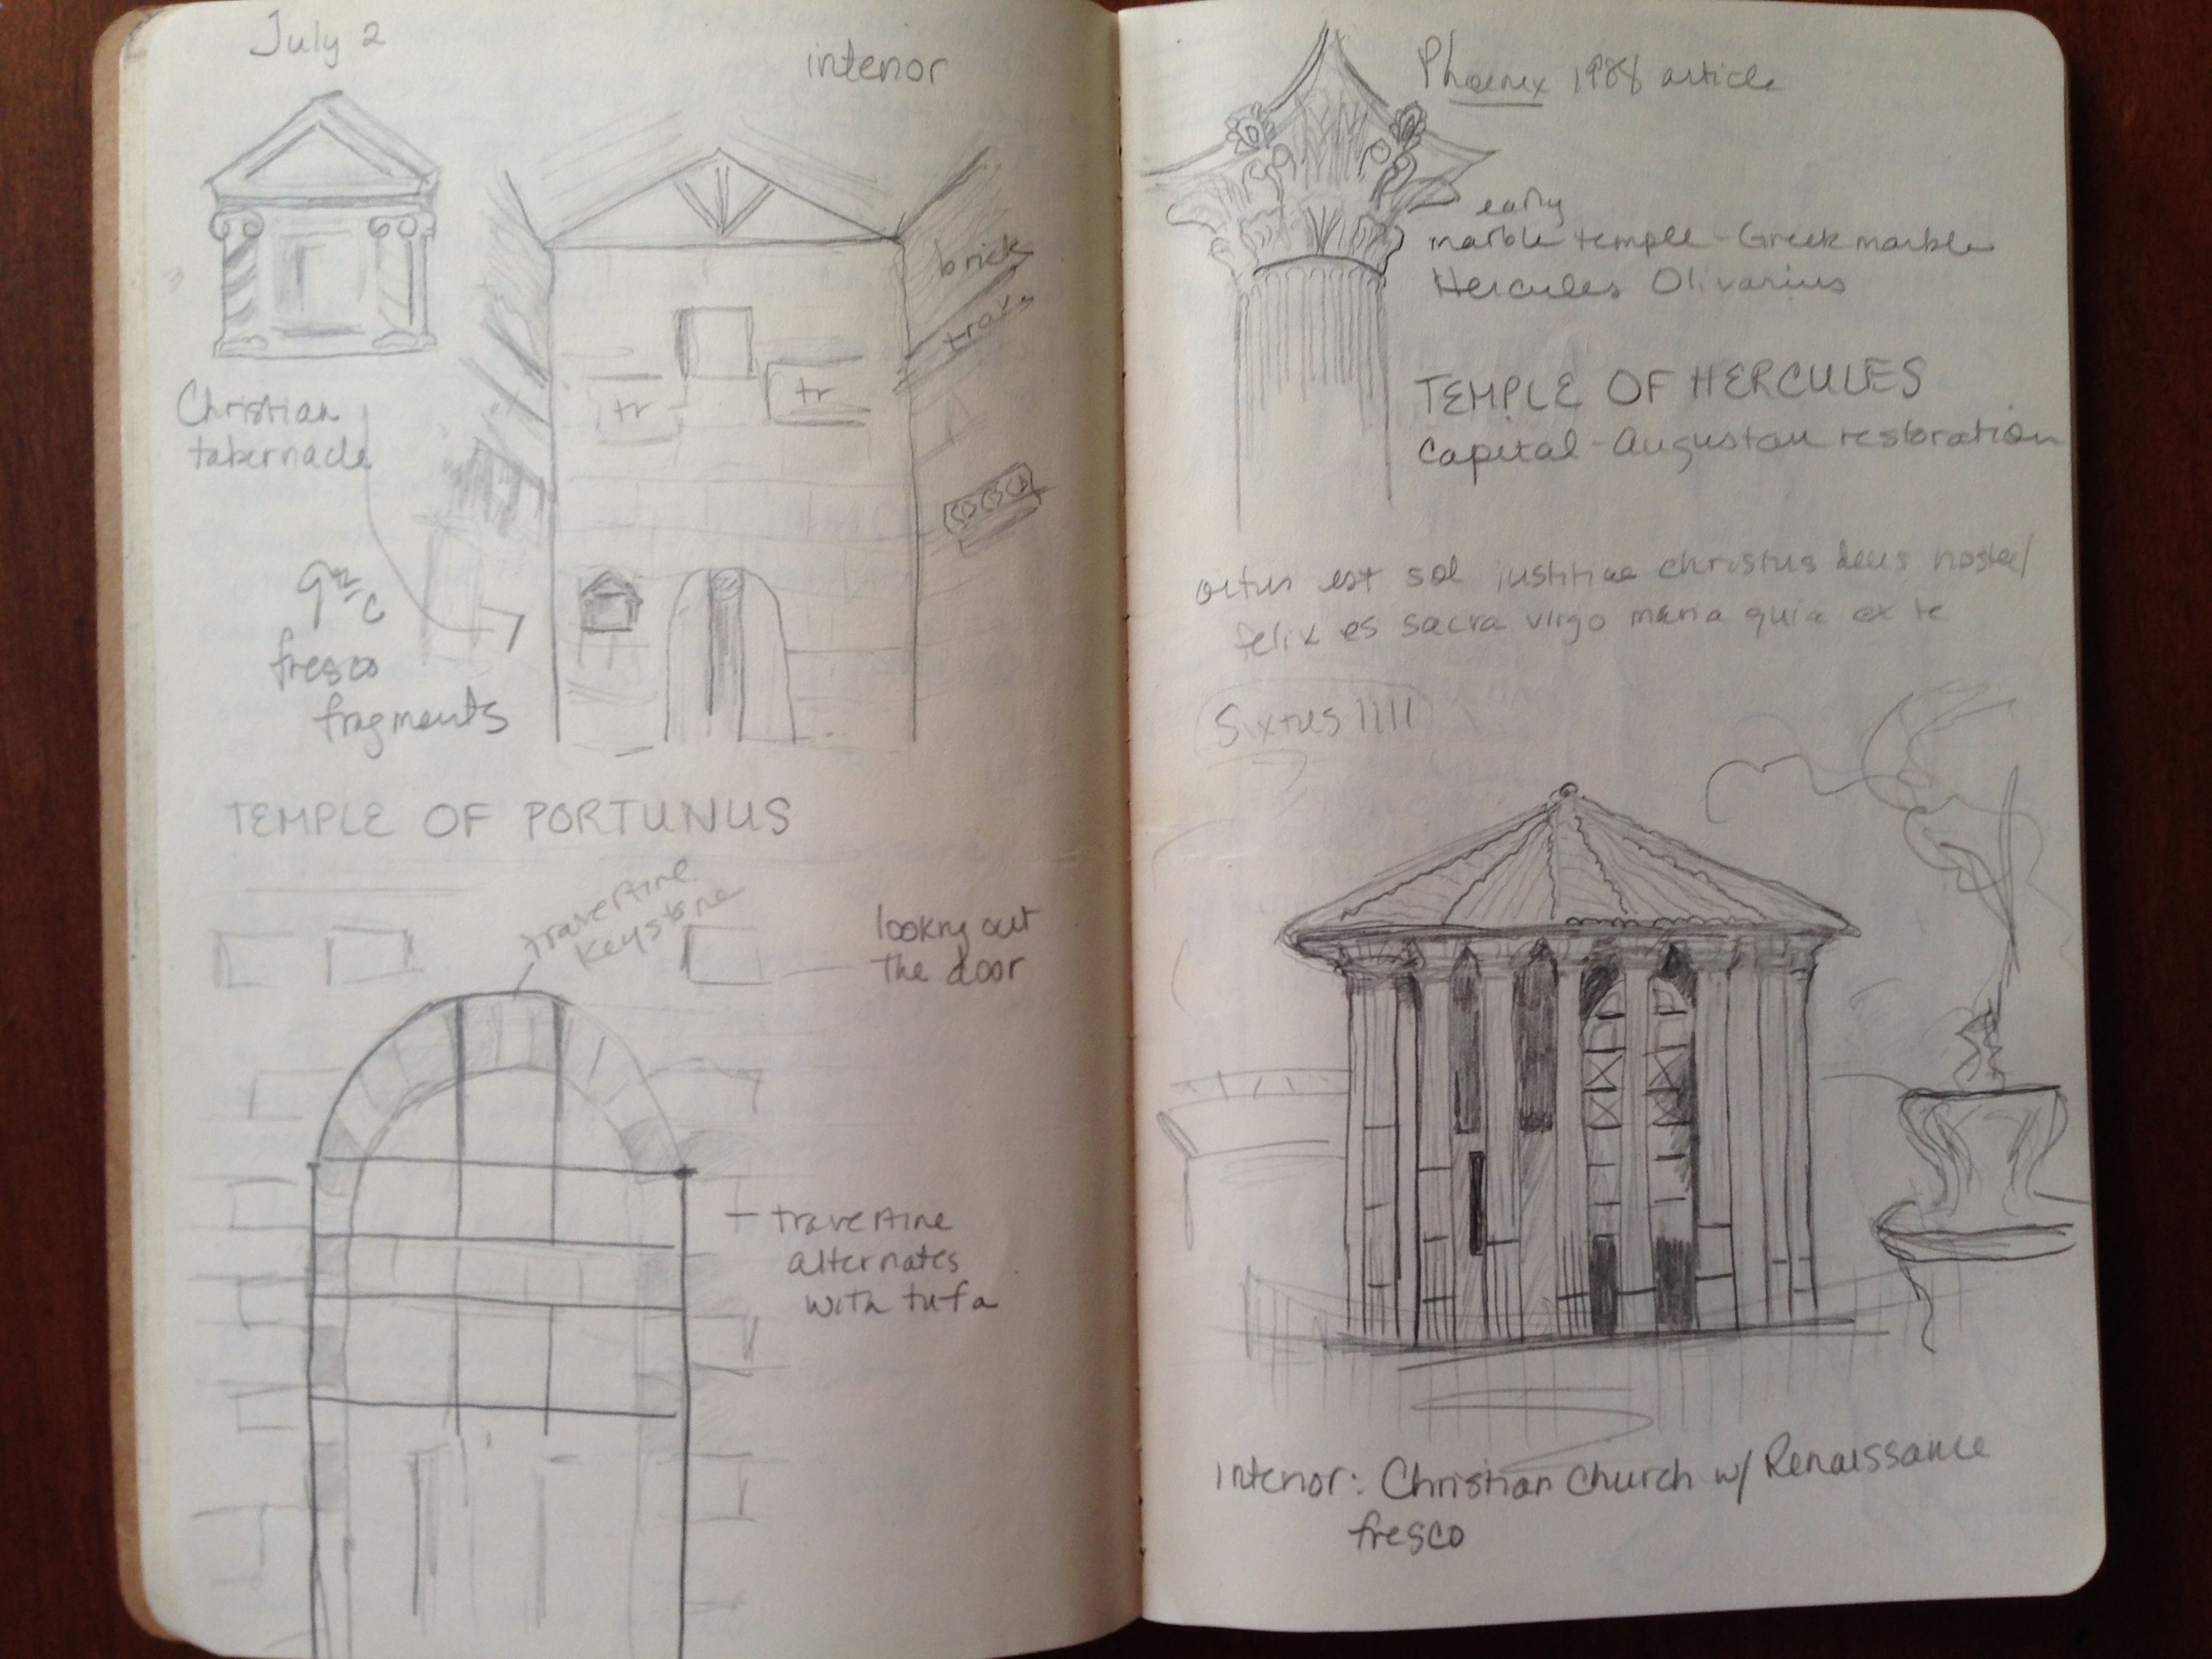 July 2
interior
brick
trav.
tr
tr
Christian
tabernacle
9th c
fresco
fragments
TEMPLE OF PORTUNUS
travertine
keystone
looking out
the door
travertine
alternates
with tufa
Phoenix 1988 article
early
marble temple - Greek marble
Hercules Olivarius
TEMPLE OF HERCULES
Capital - Augustan restoration
ortus est sol iustitiae christus deus noster/
felix es sacra virgo maria quia ex te
Sixtus IIII
Interior: Christian Church w/ Renaissance
fresco